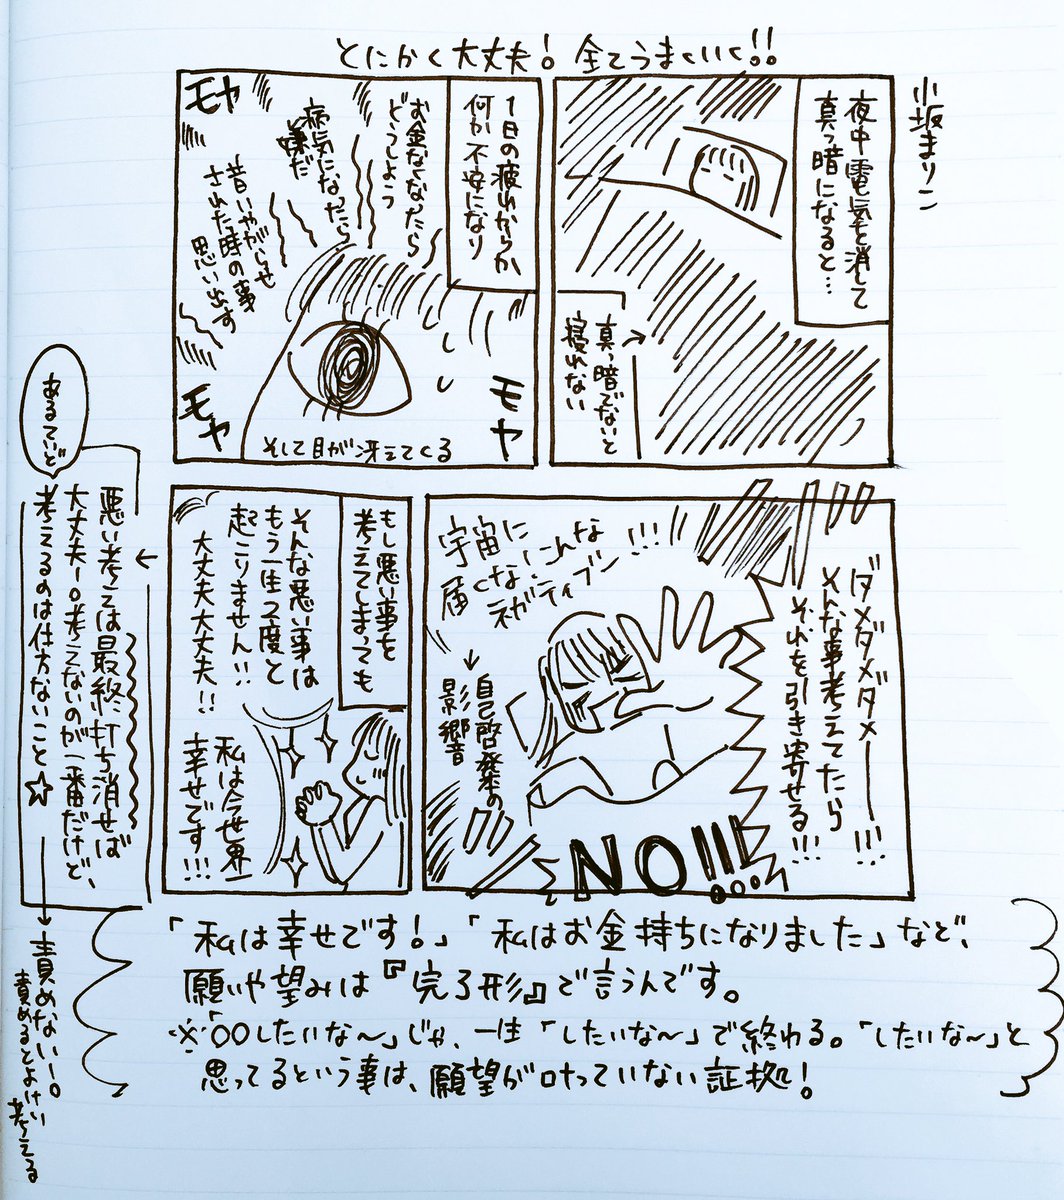 とにかく大丈夫！全てうまくいく!!
小坂まリン
夜中電気を消して
真っ暗になると…
真っ暗でないと
寝れない
1日の疲れからか
何か不安になり
お金なくなったら
どうしよう
病気になったら
嫌だ
昔いやがらせ
された時の事
思い出す
モヤ
モヤ
モヤ
そして目が冴えてくる
ダメダメダメー!!!
そんな事考えてたら
それを引き寄せる!!!
宇宙にこんな
届くな、
ネガティブン!!!
自己啓発本の
影響
NO!!!
もし悪い事を
考えてしまっても
そんな悪い事は
もう一生2度と
起こりません!!
大丈夫大丈夫!!
私は今世界一
幸せです!!!
あるていど
悪い考えは最終打ち消せば
大丈夫ー。考えないのが一番だけど、
考えるのは仕方ないこと☆
責めないー。
責めるとよけい考える
「私は幸せです！」「私はお金持ちになりました」など、
願いや望みは『完了形』で言うんです。
※「〇〇したいな〜」じゃ、一生「したいな〜」で終わる。「したいな〜」と
思ってるという事は、願望が叶っていない証拠！